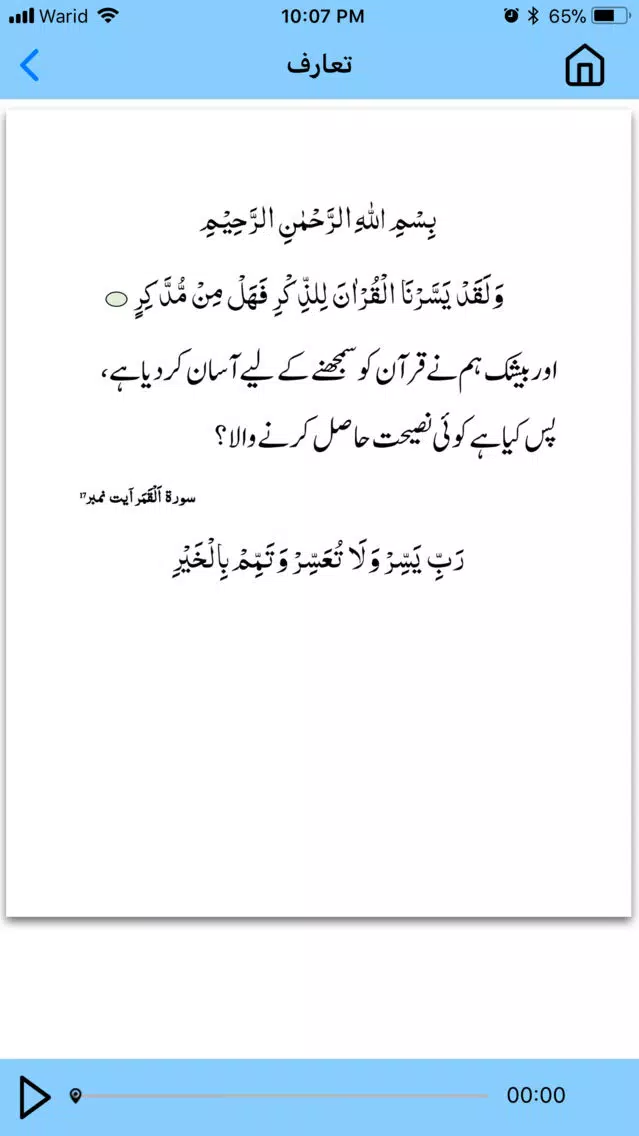 Warid 10:07 PM 65%
تعارف
بِسْمِ اللّٰهِ الرَّحْمٰنِ الرَّحِيْمِ
وَلَقَدْ يَسَّرْنَا الْقُرْاٰنَ لِلذِّكْرِ فَهَلْ مِنْ مُّدَّكِرٍ
اور بیشک ہم نے قرآن کو سمجھنے کے لیے آسان کر دیا ہے،
پس کیا ہے کوئی نصیحت حاصل کرنے والا؟
سورة اَلْقَمَر آیت نمبر ۱۷
رَبِّ يَسِّرْ وَلَا تُعَسِّرْ وَتَمِّمْ بِالْخَيْرِ
00:00